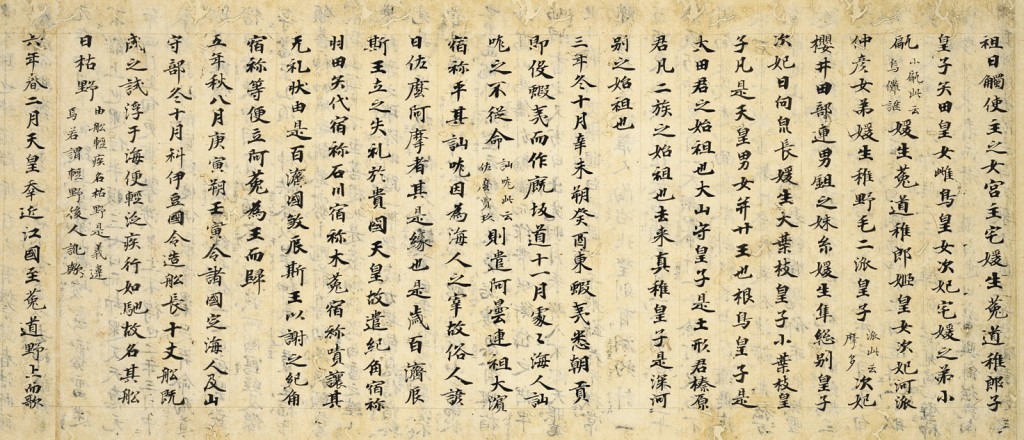 祖日觸使主之女宮主宅媛生菟道稚郎子
皇子矢田皇女雌鳥皇女次妃宅媛之弟小
甂小甂此云烏儺謎媛生菟道稚郎姬皇女次妃河派
仲彦女弟媛生稚野毛二派皇子派此云摩多次妃
櫻井田部連男鉏之妹糸媛生隼総別皇子
次妃日向泉長媛生大葉枝皇子小葉枝皇
子凡是天皇男女并廿王也根鳥皇子是
大田君之始祖也大山守皇子是土形君榛原
君凡二族之始祖也去来真稚皇子是深河
別之始祖也
三年冬十月辛未朔癸酉東蝦夷悉朝貢
即役蝦夷而作廐坂道十一月處〻海人訕
哤之不従命訕哤此云佐麼賣玖則遣阿曇連祖大濱
宿祢平其訕哤因為海人之宰故俗人諺
曰佐麼阿摩者其是縁也是歳百濟辰
斯王立之失礼於貴國天皇故遣紀角宿祢
羽田矢代宿祢石川宿祢木菟宿祢嘖讓其
无礼状由是百濟國敘辰斯王以謝之紀角
宿祢等便立阿菟為王而歸
五年秋八月庚寅朔壬寅令諸國定海人及山
守部冬十月科伊豆國令造舩長十丈舩既
成之試浮于海便輕泛疾行如馳故名其舩
曰枯野由舩輕疾名枯野是義違焉若謂輕野後人訛歟
六年春二月天皇幸近江國至菟道野上而歌